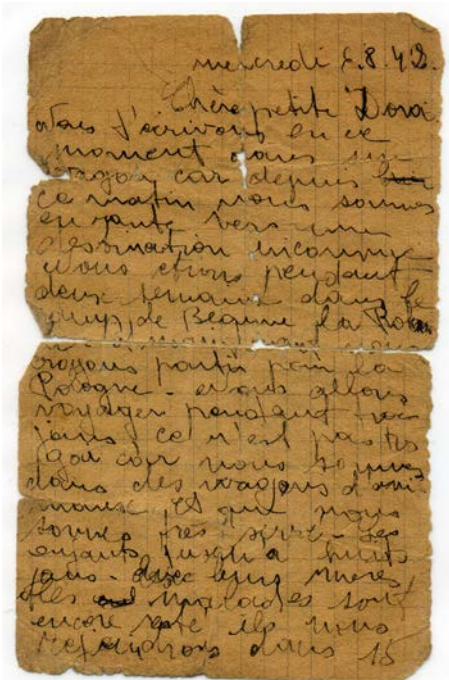 mercredi 5.8.42.
Chère petite Dora
Nous t'écrivons en ce
moment dans un
wagon car depuis
ce matin nous sommes
en route vers une
destination inconnue
Nous étions pendant
deux semaine dans le
de Beaune la
croyons partir pour la
Pologne - nous allons
voyager pendant trois
jours ce n'est pas très
gai car nous sommes
dans des wagons d'ani-
maux, et que nous
sommes très serré. Les
enfants jusqu'à huits
ans. avec leurs mères
les malades sont
encore resté ils nous
rejoindrons dans 15